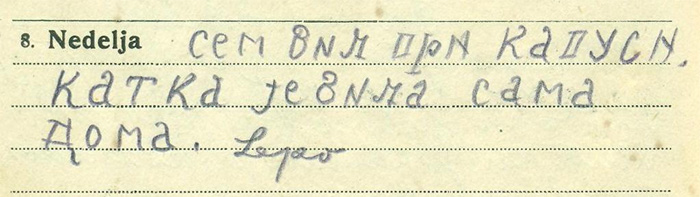 8. Nedelja сем бил при капуси.
Катка је била сама
дома. Lepo